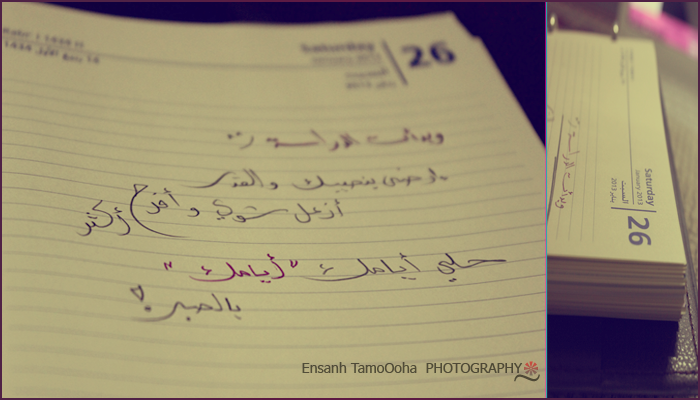 Rabi' I 1434 H
14 ربيع الأول 1434
Saturday
January 2013
السبت
يناير 2013
26
وبدأت الدراسة
ارضى بنصيبك والقدر
أزعل شوي و أفرح أكثر
حلي أيامك "أيامك"
بالصبر
Ensanh TamoOoha PHOTOGRAPHY
Saturday
January 2013
السبت
يناير 2013
26
وبدأت الدراسة